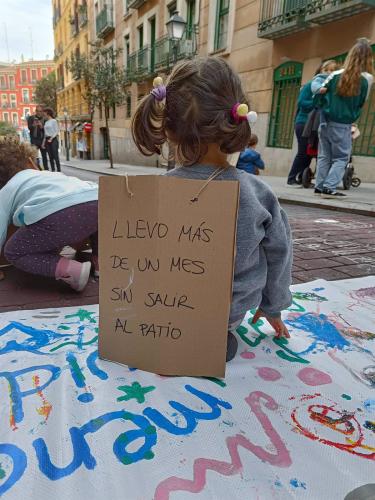 LLEVO MÁS
DE UN MES
SIN SALIR
AL PATIO